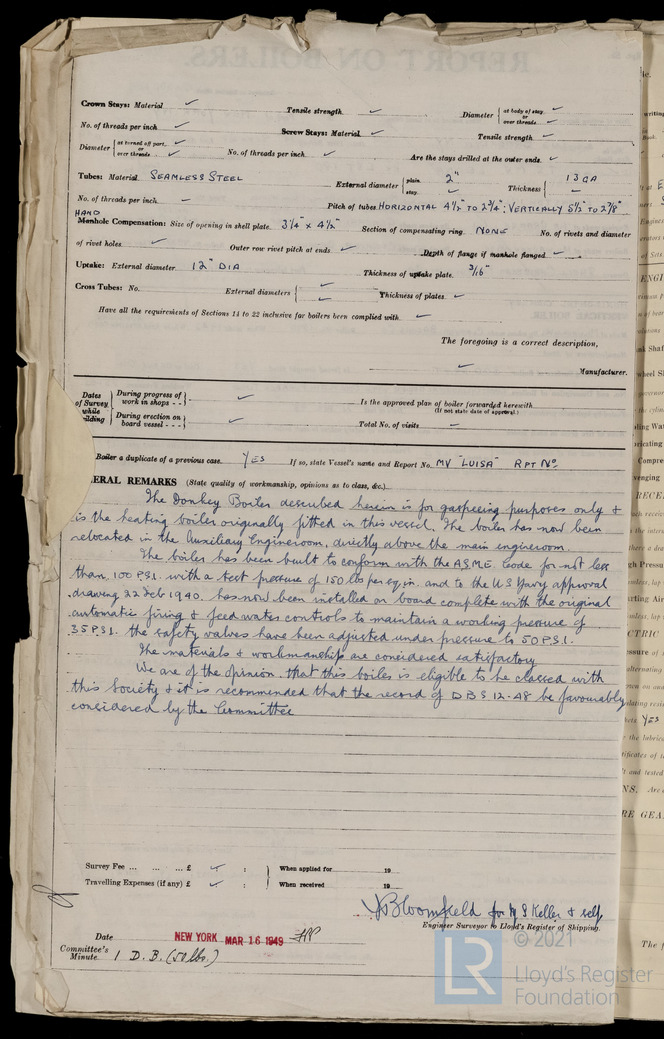 Crown Stays: Material ✓ Tensile strength ✓ Diameter { at body of stay, or over threads ✓
No. of threads per inch ✓ Screw Stays: Material ✓ Tensile strength ✓
Diameter { at turned off part, or over threads ✓ No. of threads per inch ✓ Are the stays drilled at the outer ends ✓
Tubes: Material SEAMLESS STEEL External diameter { plain 2" stay ✓ Thickness { 13 GA ✓
No. of threads per inch ✓ Pitch of tubes HORIZONTAL 4½" TO 2¾"; VERTICALLY 5½" TO 2⅞"
HAND
Manhole Compensation: Size of opening in shell plate 3¼" x 4½" Section of compensating ring NONE No. of rivets and diameter
of rivet holes ✓ Outer row rivet pitch at ends ✓ Depth of flange if manhole flanged ✓
Uptake: External diameter 12" DIA Thickness of uptake plate 3/16"
Cross Tubes: No. External diameters { ✓ ✓ Thickness of plates ✓
Have all the requirements of Sections 14 to 22 inclusive for boilers been complied with ✓
The foregoing is a correct description,
✓ Manufacturer.
Dates of Survey while building { During progress of work in shops - - ✓ Is the approved plan of boiler forwarded herewith (If not state date of approval.)
During erection on board vessel - - - ✓ Total No. of visits ✓
Boiler a duplicate of a previous case YES If so, state Vessel's name and Report No. MV "LUISA" RPT No
ERAL REMARKS (State quality of workmanship, opinions as to class, &c.)
The Donkey Boiler described herein is for gasfreeing purposes only &
is the heating boiler originally fitted in this vessel. The boiler has now been
relocated in the Auxiliary Engineroom, directly above the main engineroom.
The boiler has been built to conform with the A.S.M.E. Code for not less
than 100 P.S.I. with a test pressure of 150 lbs per sq in. and to the U S Navy approval
drawing 22 Feb 1940. has now been installed on board complete with the original
automatic firing & feed water controls to maintain a working pressure of
35 P.S.I. the safety valves have been adjusted under pressure to 50 P.S.I.
The materials & workmanship are considered satisfactory
We are of the opinion that this boiler is eligible to be classed with
this Society & it is recommended that the record of DBS 12-48 be favourably
considered by the Committee
Survey Fee ... ... ... £ ✓ : } When applied for 19
Travelling Expenses (if any) £ ✓ : } When received 19
J Bloomfield for N S Keller & self
Engineer Surveyor to Lloyd's Register of Shipping.
Date NEW YORK MAR 16 1949
Committee's Minute 1 D. B. (50 lbs.)
© 2021
LR Lloyd's Register
Foundation